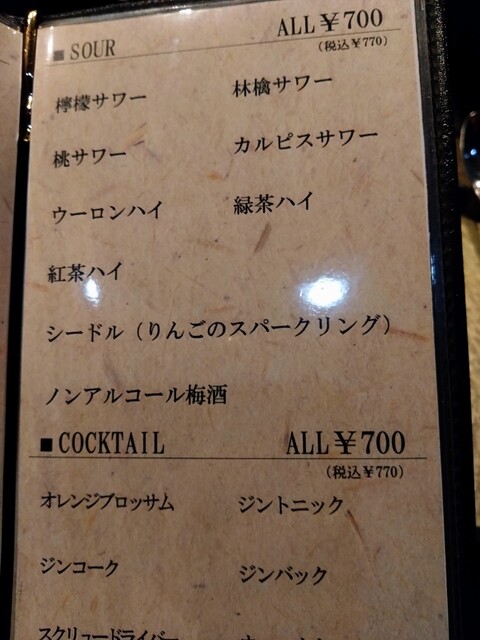 ■ SOUR ALL ¥700
(税込¥770)
檸檬サワー 林檎サワー
桃サワー カルピスサワー
ウーロンハイ 緑茶ハイ
紅茶ハイ
シードル(りんごのスパークリング)
ノンアルコール梅酒
■ COCKTAIL ALL ¥700
(税込¥770)
オレンジブロッサム ジントニック
ジンコーク ジンバック
スクリュードライバー